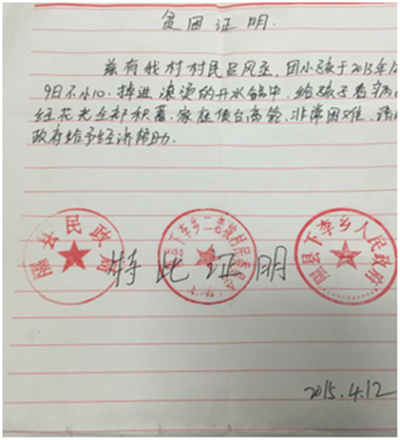 贫困证明.
兹有我村村民吕风 因小孩于2013年
9日不小心.掉进滚烫的开水锅中.给孩子看病已
经花光全部积蓄.家庭债台高筑.非常困难.请
政府给予经济帮助.
隰县民政局
隰县下李乡 村民委员会
隰县下李乡人民政府
特此证明
2015.4.12